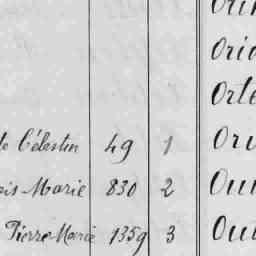 Ori
Orte
Célestin 49 1 Oru
Marie 830 2 Ou
Pierre Marie 1359 3 Ou